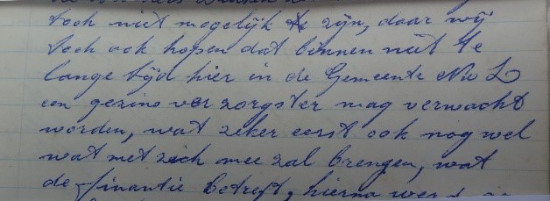 toch niet mogelijk te zijn, daar wij
toch ook hopen dat binnen niet te
lange tijd hier in de Gemeente
een gezins verzorgster mag verwacht
worden, wat zeker eerst ook nog wel
wat met zich mee zal brengen, wat
de finantie betreft, hierna